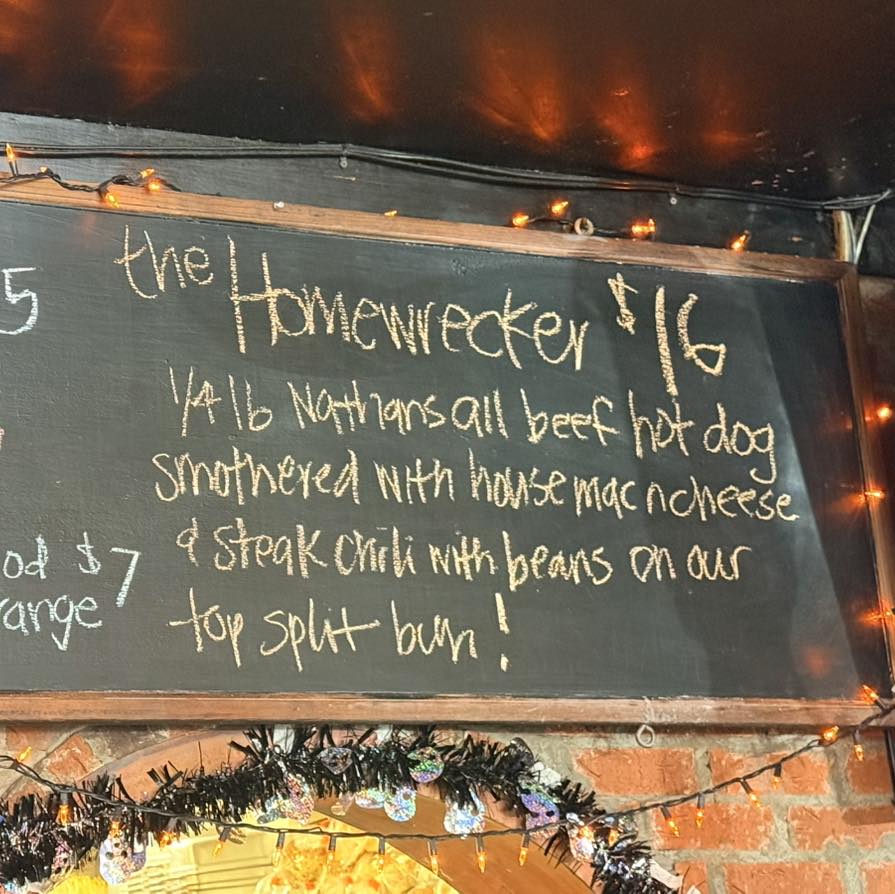 5
the Homewrecker $16
1/4 lb Nathans all beef hot dog
smothered with house mac n cheese
& steak chili with beans on our
top split bun!
od $7
range